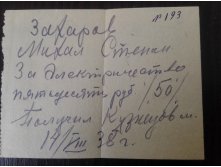 № 193
Захаров
Михал Степан
За электричество
пятьдесят руб /50/
Получил Кузнецов м.
14/VIII 38 г.